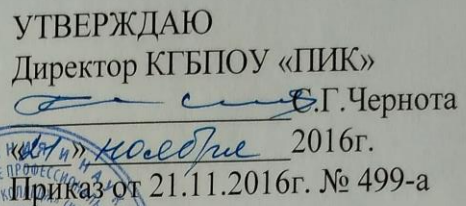 УТВЕРЖДАЮ
Директор КГБПОУ «ПИК»
С.Г.Чернота
«21» ноября 2016г.
Приказ от 21.11.2016г. № 499-а